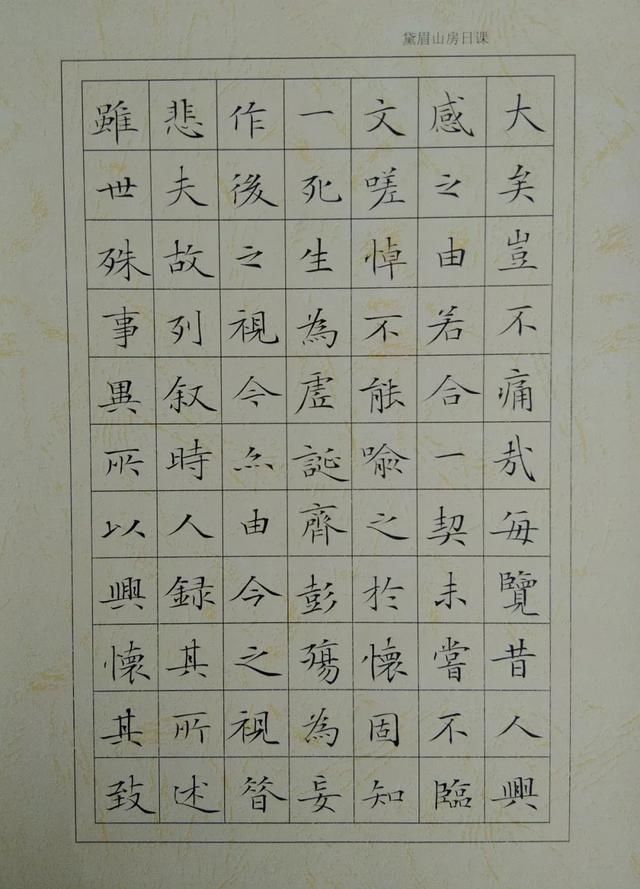 黛眉山房日课
大矣豈不痛哉每覽昔人興
感之由若合一契未嘗不臨
文嗟悼不能喻之於懷固知
一死生為虛誕齊彭殤為妄
作後之視今亦由今之視昔
悲夫故列叙時人録其所述
雖世殊事異所以興懷其致